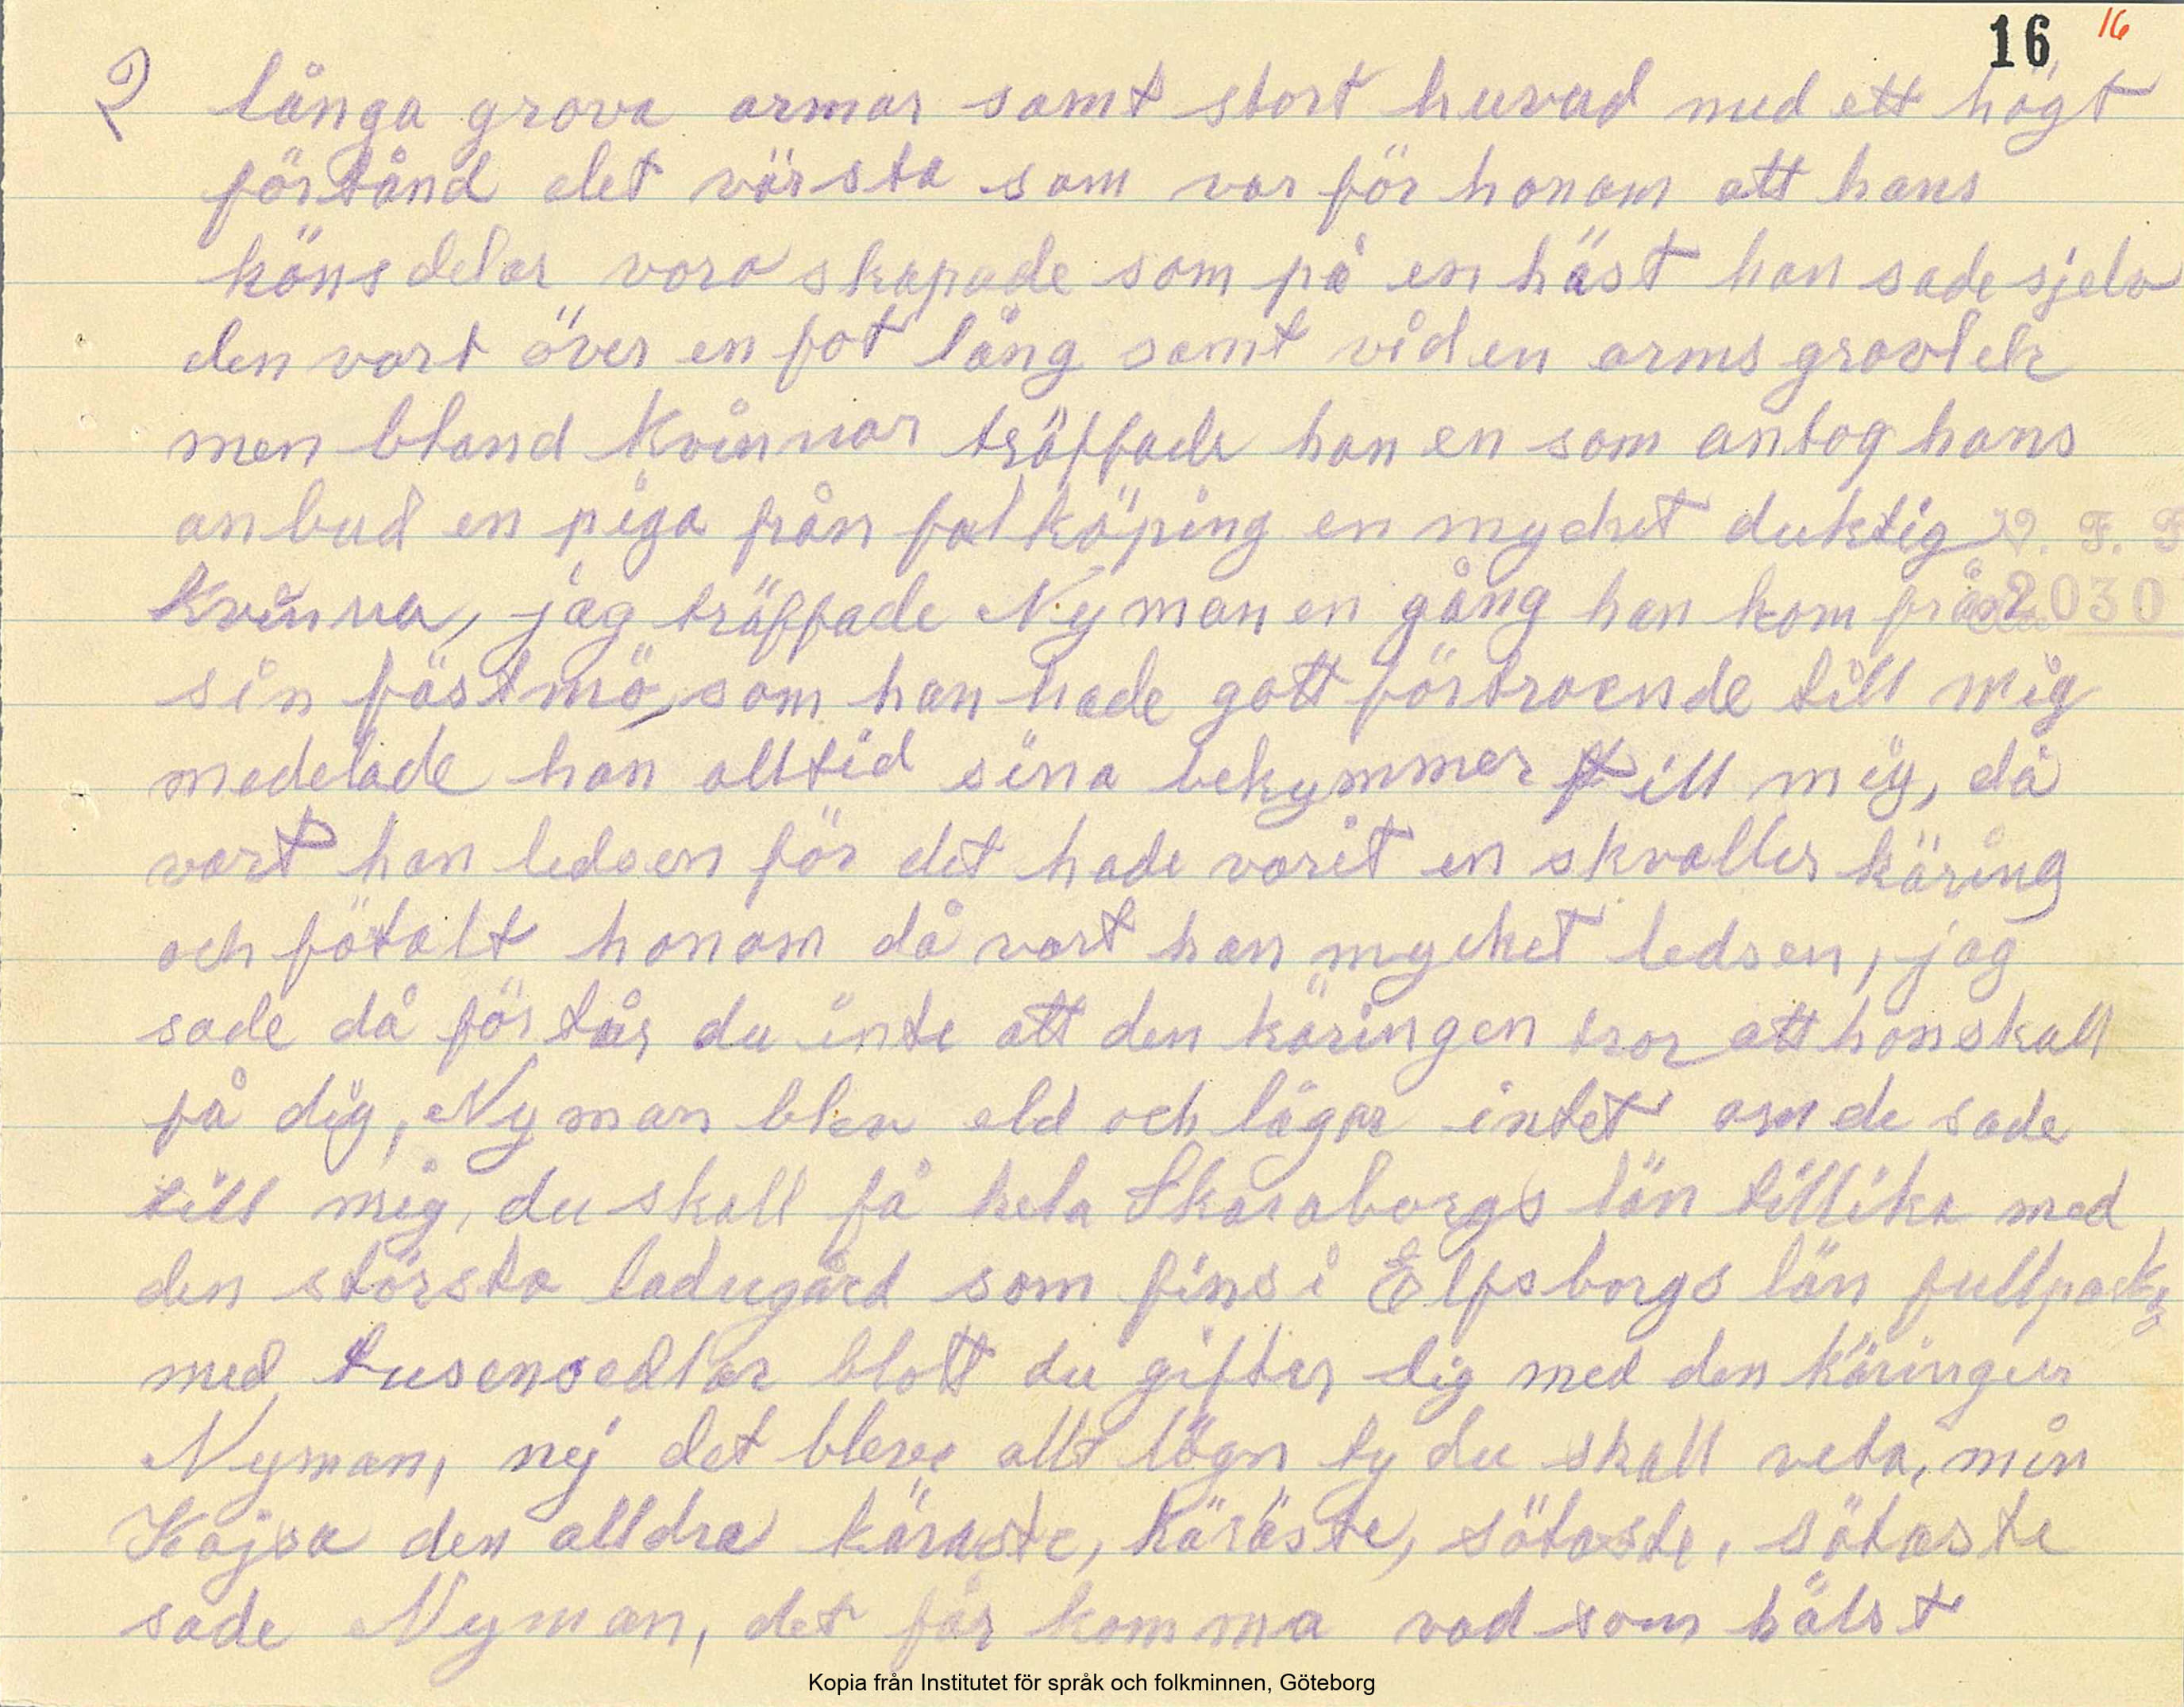 16 16
2 långa grova armar samt stort huvud med ett högt
förtånd det värsta som var för honom att hans
könsdelar voro skapade som på en häst han sade sjelv
den vart över en fot lång samt vid en arms grovlek
men bland kvinnor träffade han en som antog hans
anbud en piga från falköping en mycket duktig V. F.
kvinna, jag träffade Nyman en gång han kom från 2030
sin fästmö, som han hade gott förtroende till mig
medelade han alltid sina bekymmer till mig, då
vart han ledsen för det hade varit en skvaller käring
och fötalt honom då vart han mycket ledsen, jag
sade då förtår du inte att den käringen tror att hon skall
få dig, Nyman blev eld och lågar intet om de sade
till mig, du skall få hela Skaraborgs län tillika med
den största ladugård som fins i Elfsborgs län fullpack
med tusensedlar blott du gifter dig med den käringen
Nyman, nej det bleve allt lögn ty du skall veta, min
Kajsa den alldra käraste, käraste, sötaste, sötaste
sade Nyman, det får komma vad som hälst
Kopia från Institutet för språk och folkminnen, Göteborg